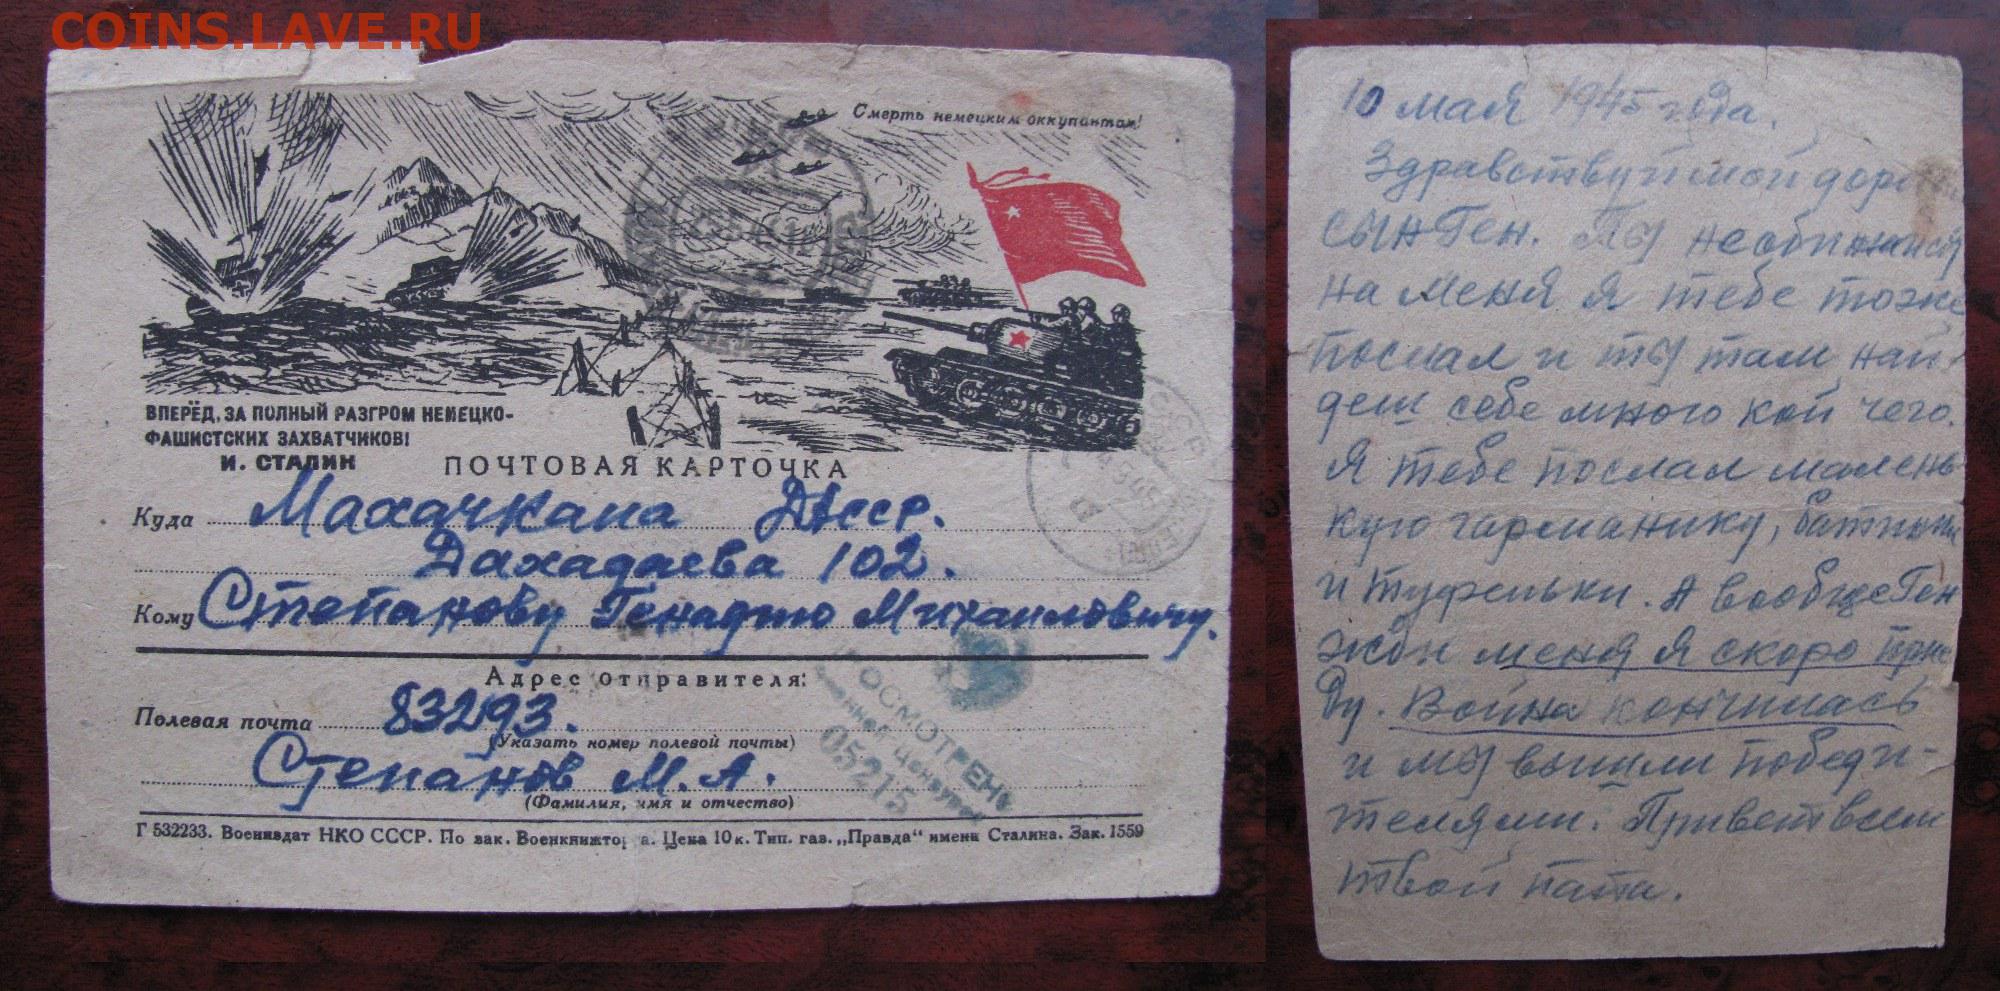 COINS.LAVE.RU
Смерть немецким оккупантам!
ВПЕРЁД, ЗА ПОЛНЫЙ РАЗГРОМ НЕМЕЦКО-
ФАШИСТСКИХ ЗАХВАТЧИКОВ!
И. СТАЛИН
ПОЧТОВАЯ КАРТОЧКА
Куда Махачкала ДАССР.
Дахадаева 102.
Кому Степанову Генадию Михаиловичу.
Адрес отправителя:
Полевая почта 83293.
(Указать номер полевой почты)
Степанов М. А.
(Фамилия, имя и отчество)
Г 532233. Воениздат НКО СССР. По зак. Военкнижторга. Цена 10 к. Тип. газ. „Правда“ имени Сталина. Зак. 1559
ПРОСМОТРЕНО
Военной Цензурой
05215
10 мая 1945 года.
Здравствуй мой
сын Ген. Ты не обижайся
на меня я тебе тоже
послал и ты там най-
деш себе много кой чего.
Я тебе послал малень
кую гарманику,
и туфельки. А вообще Ген
жди меня я скоро прие
ду. Война кончилась
и мы вышли победи-
телями. Привет всем
твой папа.